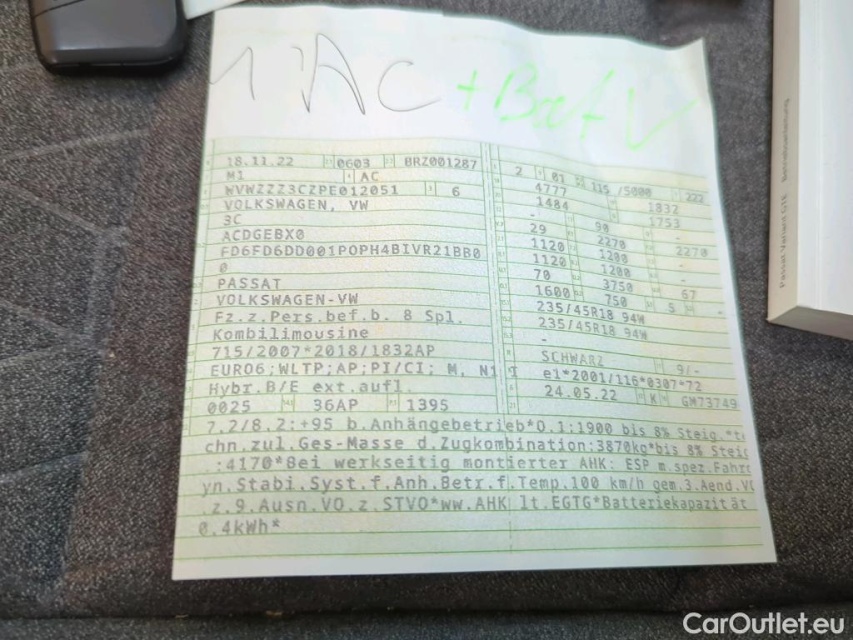 AC + Batt V
18.11.22 0603 BRZ001287 2 01 115 /5000 222
M1 AC 4777 1832
WVWZZZ3CZPE012051 6 1484 1753
VOLKSWAGEN, VW - 90 -
3C 29 2270 2270
ACDGEBX0 1120 1200 -
FD6FD6DD001POPH4BIVR21BB0 1120 1200 -
0 70 3750 67
PASSAT 1600 750 S -
VOLKSWAGEN-VW 235/45R18 94W
Fz.z.Pers.bef.b. 8 Spl. 235/45R18 94W
Kombilimousine -
715/2007*2018/1832AP SCHWARZ 9/-
EURO6;WLTP;AP;PI/CI; M, N1 I e1*2001/116*0307*72
Hybr.B/E ext.aufl. 24.05.22 K GM73749
0025 36AP 1395
7.2/8.2:+95 b.Anhängebetrieb*O.1:1900 bis 8% Steig.*te
chn.zul.Ges-Masse d.Zugkombination:3870kg*bis 8% Steig
.:4170*Bei werkseitig montierter AHK: ESP m.spez.Fahrd
yn.Stabi.Syst.f.Anh.Betr.f.Temp.100 km/h gem.3.Aend.VO
.z.9.Ausn.VO.z.STVO*ww.AHK lt.EGTG*Batteriekapazität
0.4kWh*
Passat Variant GTE Betriebsanleitung
CarOutlet.eu